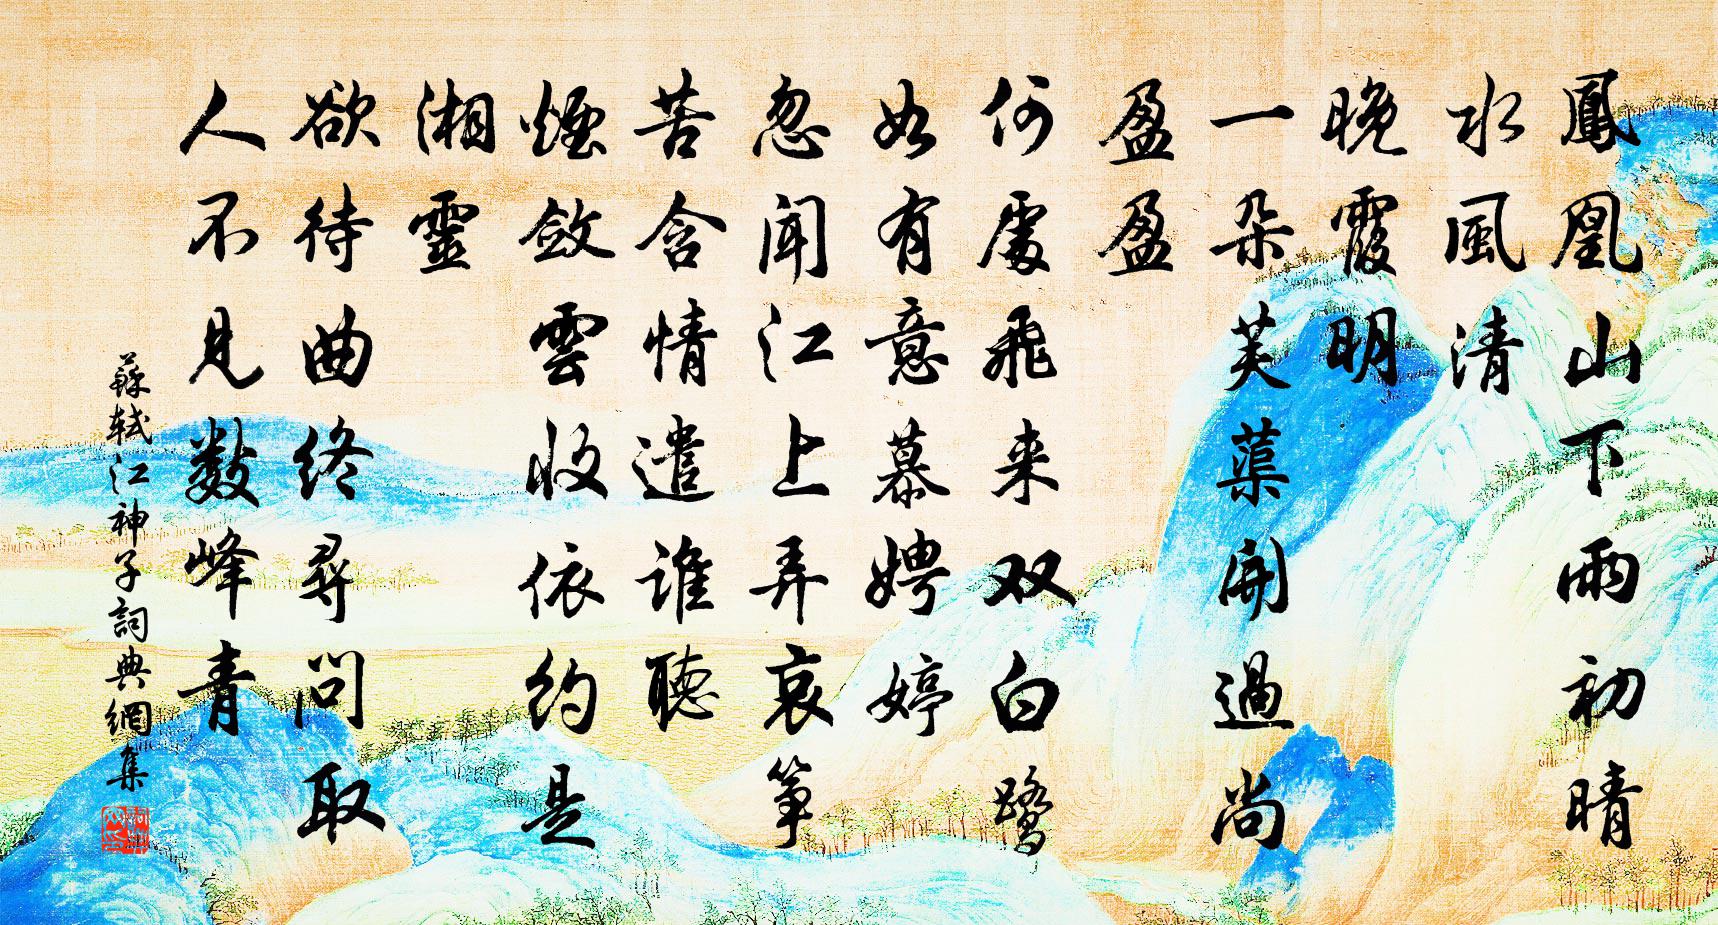 鳳凰山下雨初晴
水風清
晚霞明
一朵芙蕖開過尚
盈盈
何處飛来双白鷺
如有意慕娉婷
忽聞江上弄哀箏
苦含情遣誰聽
煙斂雲收依約是
湘靈
欲待曲終尋問取
人不見數峰青
蘇軾江神子詞典網集